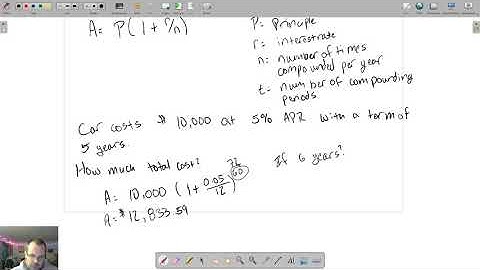 A = P(1 + r/n)
P = Principle
r = interest rate
n = number of times
compounded per year
t = number of compounding
periods
Car costs $10,000 at 5% APR with a term of
5 years.
How much total cost?
If 6 years?
A = 10,000 (1 + 0.05/12)^60 72
A = $12,833.59